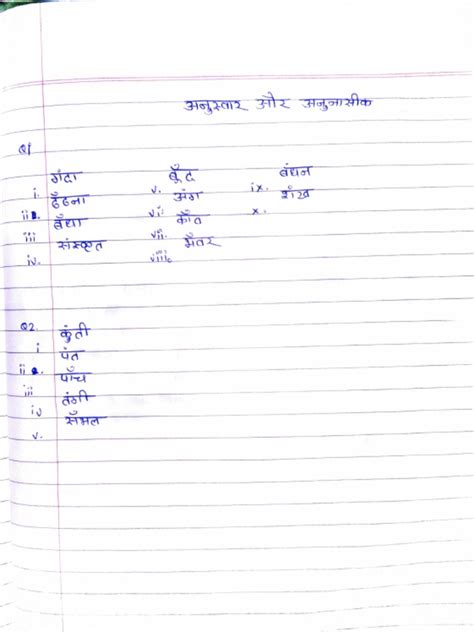 अनुस्वार और अनुनासीक
Q1
i. गंदा
ii. ढँढना
iii बँधा
iv. संस्कृत
v. बूँद
vi. अंग
vii. काँत
viii. भँवर
ix. बंधन
x. शंख
Q2.
i कुंती
ii पंत
iii पाँच
iv तंगी
v. सँभल